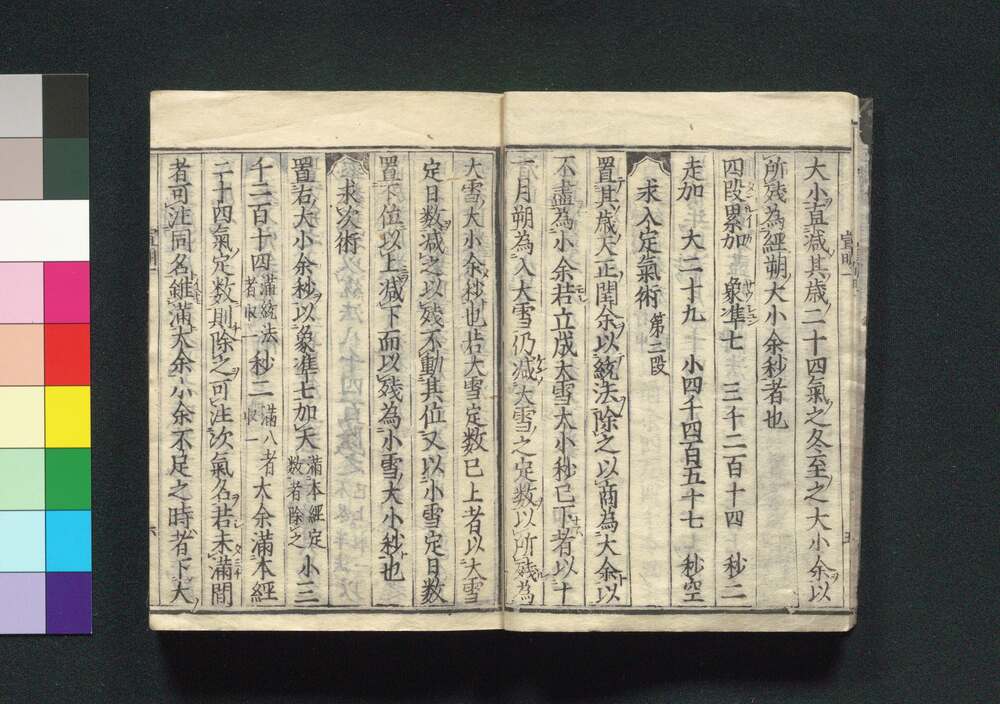 大小直減其歳二十四氣之冬至之大小余以
所残為經朔大小余秒者也
四段累加 象準七 三千二百十四 秒二
走加 大二十九 小四千四百五十七 秒空
求入定氣術 第二段
置其歳天正閏余以統法除之以商為大余以
不盡為小余若立成大雪大小秒已下者以十
一月朔為入大雪仍減大雪之定数以所残為
大雪大小余秒也若大雪定数已上者以大雪
定日数減之以残不動其位又以小雪定日数
置下位以上減下而以残為小雪大小秒也
求次術
置右大小余秒以象準七加天 滿本經定数者除之 小三
千二百十四 滿統法者收一 秒二 滿八者收一 大余滿本經
二十四氣定数則除之可注次氣名若未滿間
者可注同名雖滿大余小余不足之時者下大